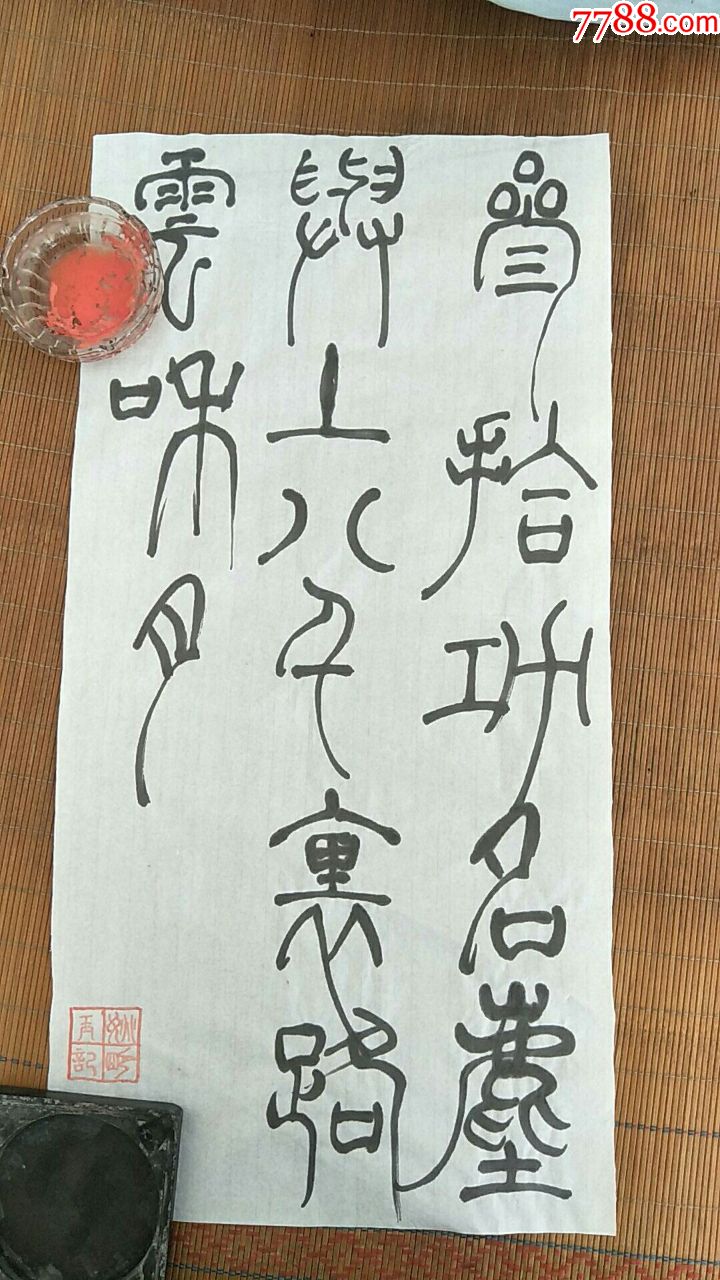 7788.com
參拾功名塵
與土八千裏路
雲和月